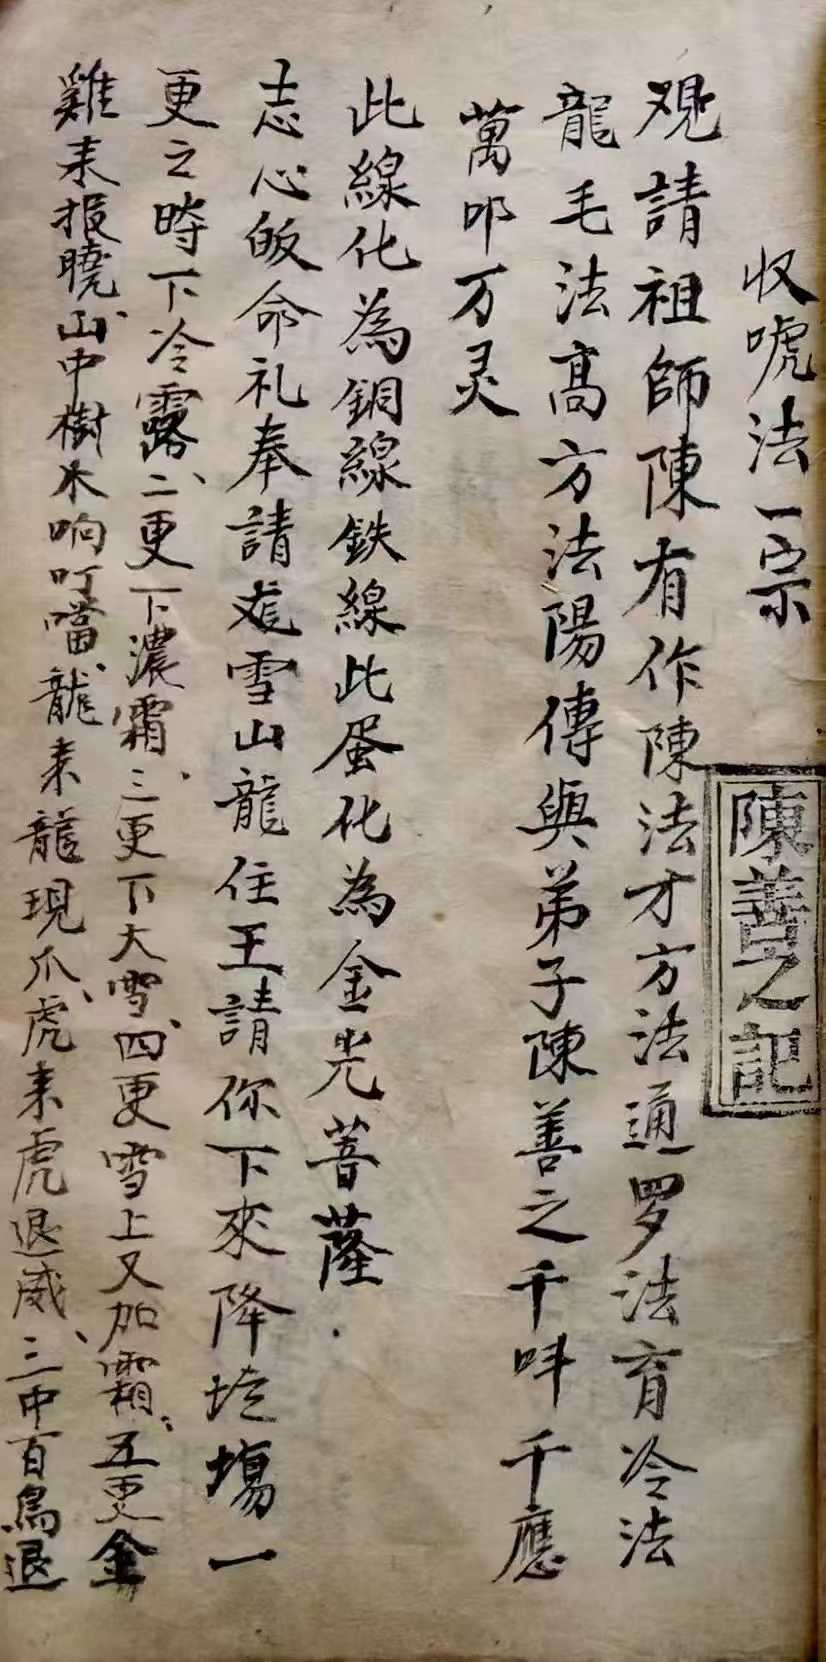 收唬法一宗
陳善之記
观請祖師陳有作陳法才方法通罗法育冷法
龍毛法高方法陽傳與弟子陳善之千呌千應
萬叩万灵
此線化為銅線鉄線此蛋化為金光菩薩
志心皈命礼奉請雪山龍住王請你下來降坛塲一
更之時下冷露、二更下濃霜、三更下大雪、四更雪上又加霜、五更金
雞来报曉、山中樹木响叮噹、龍来龍現爪、虎来虎退威、三中百鳥退